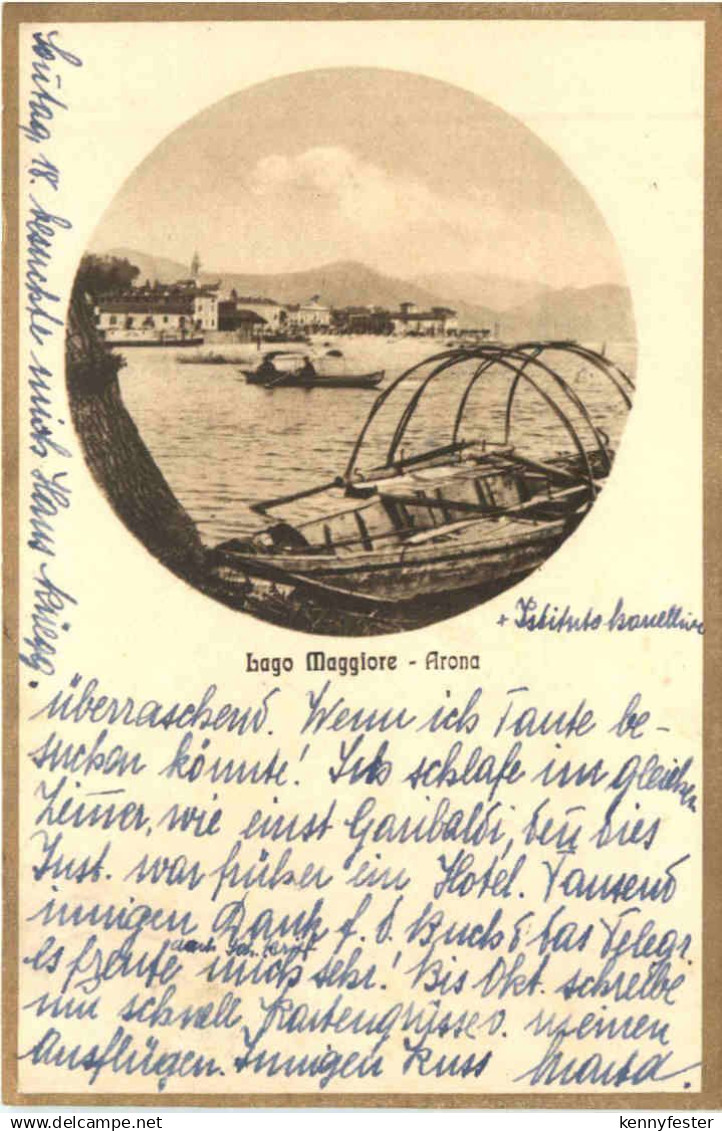 Sontag, 18. besuchte mich Hans Krieg
+ Istituto
Lago Maggiore - Arona
überraschend. Wenn ich Tante be-
suchen könnte! Ich schlafe im gleichen
Zimer, wie einst Garibaldi, den dies
Inst. war früher ein Hotel. Tausend
innigen Dank f. d. Buch & das Telegr.
es freute mich sehr! Bis Okt. schreibe
nur schnell Kartengrüsse v. meinen
Ausflügen. Innigen Kuss Marta.
kennyfester